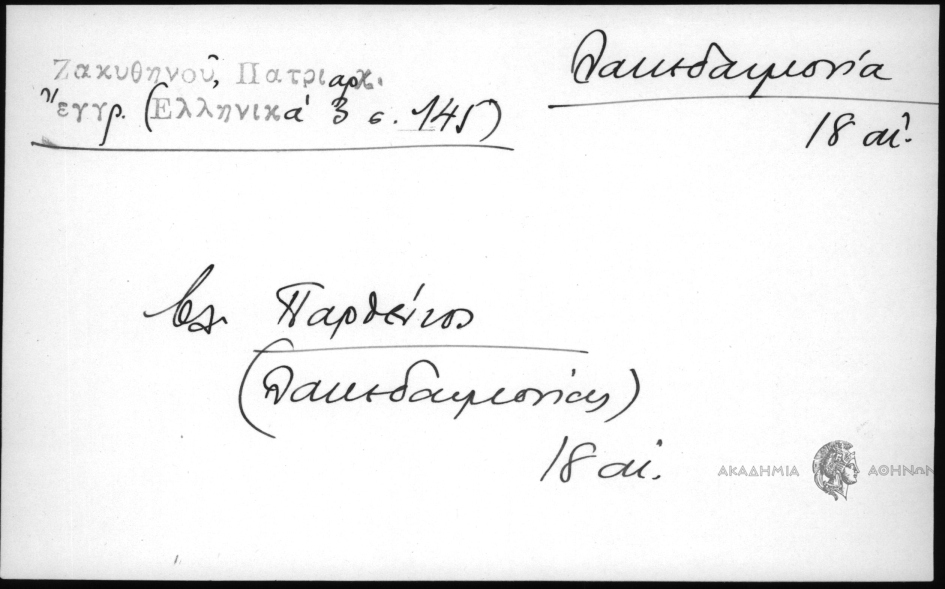 Ζακυθηνοῦ, Πατριαρχ.
ἔγγρ. (Ἑλληνικά 3 σ. 145)
Λακεδαιμονία
18 αἰ.
βλ. Παρθένιος
(Λακεδαιμονίας)
18 αἰ.
ΑΚΑΔΗΜΙΑ ΑΘΗΝΩΝ